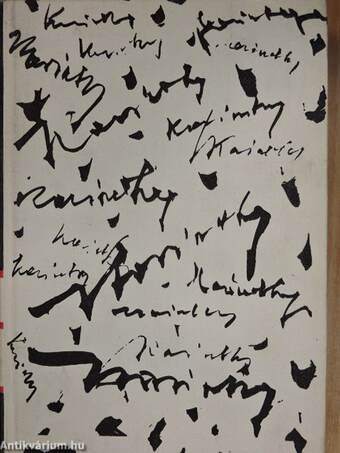 Karinthy Karinthy
Karinthy Karinthy Karinthy
Karinthy Karinthy
Karinthy
Karinthy
Karinthy
Karinthy
Karinthy Karinthy
Karinthy
Karinthy
Karinthy
Karinthy
Antikvárium.hu